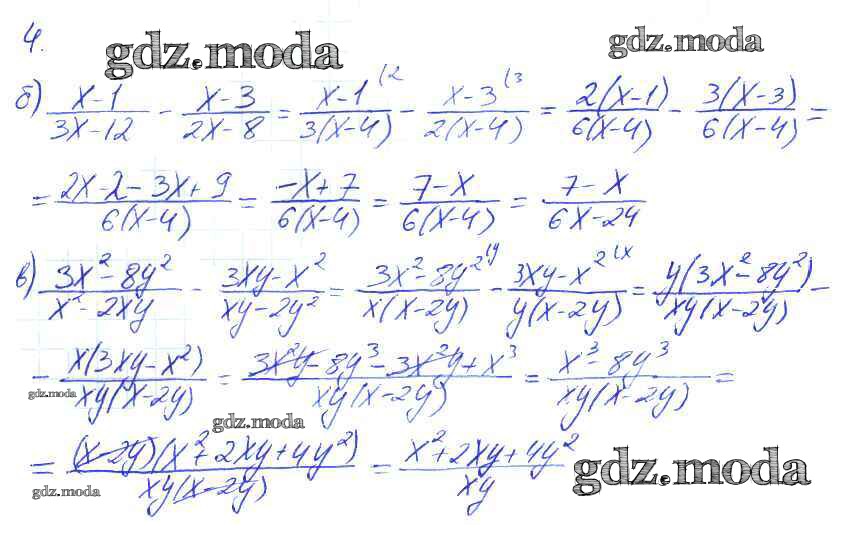 4.
gdz.moda
gdz.moda
б) (x-1)/(3x-12) - (x-3)/(2x-8) = (x-1)/(3(x-4)) (2 - (x-3)/(2(x-4)) (3 = 2(x-1)/(6(x-4)) - 3(x-3)/(6(x-4)) =
= (2x-2-3x+9)/(6(x-4)) = (-x+7)/(6(x-4)) = (7-x)/(6(x-4)) = (7-x)/(6x-24)
в) (3x²-8y²)/(x²-2xy) - (3xy-x²)/(xy-2y²) = (3x²-8y²)/(x(x-2y)) (y - (3xy-x²)/(y(x-2y)) (x = y(3x²-8y²)/(xy(x-2y)) -
- x(3xy-x²)/(xy(x-2y)) = (3x²y-8y³-3x²y+x³)/(xy(x-2y)) = (x³-8y³)/(xy(x-2y)) =
gdz.moda
gdz.moda
= (x-2y)(x²+2xy+4y²)/(xy(x-2y)) = (x²+2xy+4y²)/(xy)
gdz.moda
gdz.moda